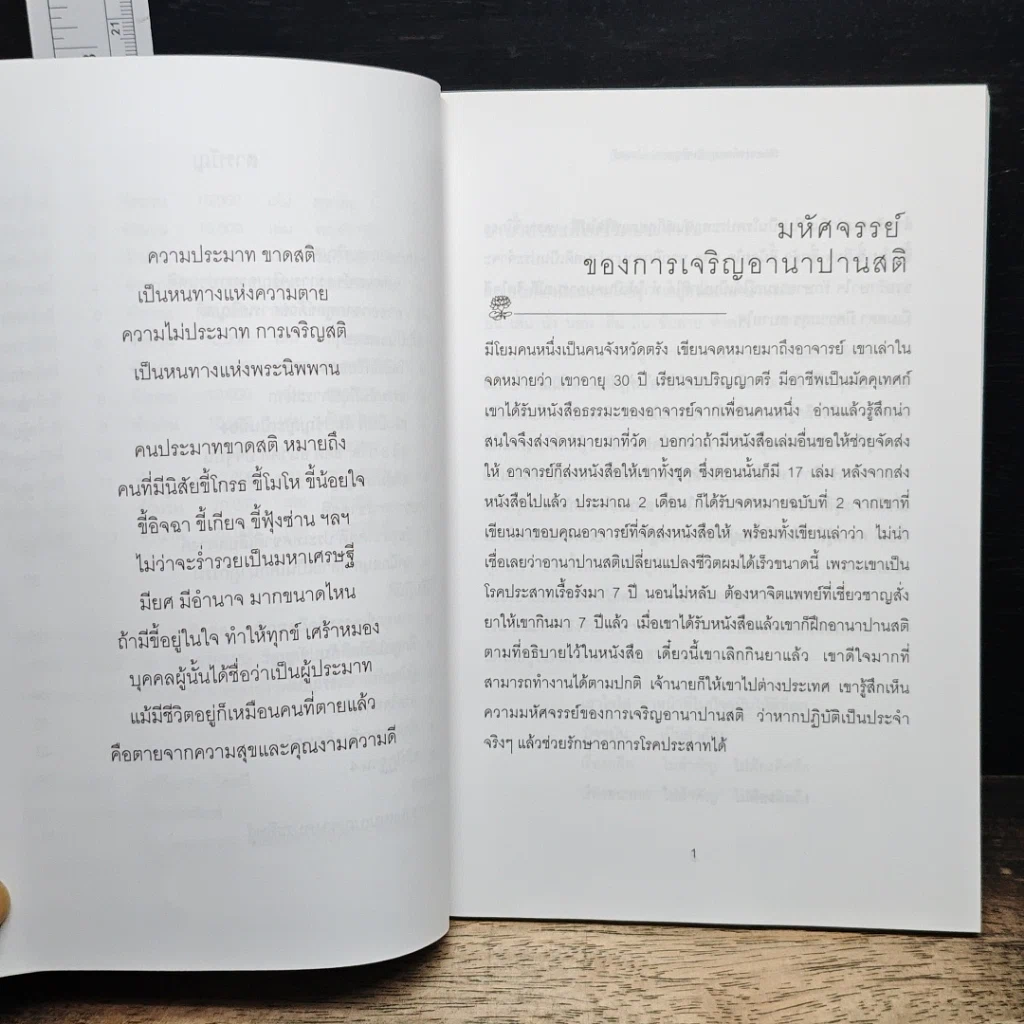 21
ความประมาท ขาดสติ
เป็นหนทางแห่งความตาย
ความไม่ประมาท การเจริญสติ
เป็นหนทางแห่งพระนิพพาน
คนประมาทขาดสติ หมายถึง
คนที่มีนิสัยขี้โกรธ ขี้โมโห ขี้น้อยใจ
ขี้อิจฉา ขี้เกียจ ขี้ฟุ้งซ่าน ฯลฯ
ไม่ว่าจะร่ำรวยเป็นมหาเศรษฐี
มียศ มีอำนาจ มากขนาดไหน
ถ้ามีขี้อยู่ในใจ ทำให้ทุกข์ เศร้าหมอง
บุคคลผู้นั้นได้ชื่อว่าเป็นผู้ประมาท
แม้มีชีวิตอยู่ก็เหมือนคนที่ตายแล้ว
คือตายจากความสุขและคุณงามความดี
มหัศจรรย์
ของการเจริญอานาปานสติ
มีโยมคนหนึ่งเป็นคนจังหวัดตรัง เขียนจดหมายมาถึงอาจารย์ เขาเล่าใน
จดหมายว่า เขาอายุ 30 ปี เรียนจบปริญญาตรี มีอาชีพเป็นมัคคุเทศก์
เขาได้รับหนังสือธรรมะของอาจารย์จากเพื่อนคนหนึ่ง อ่านแล้วรู้สึกน่า
สนใจจึงส่งจดหมายมาที่วัด บอกว่าถ้ามีหนังสือเล่มอื่นขอให้ช่วยจัดส่ง
ให้ อาจารย์ก็ส่งหนังสือให้เขาทั้งชุด ซึ่งตอนนั้นก็มี 17 เล่ม หลังจากส่ง
หนังสือไปแล้ว ประมาณ 2 เดือน ก็ได้รับจดหมายฉบับที่ 2 จากเขาที่
เขียนมาขอบคุณอาจารย์ที่จัดส่งหนังสือให้ พร้อมทั้งเขียนเล่าว่า ไม่น่า
เชื่อเลยว่าอานาปานสติเปลี่ยนแปลงชีวิตผมได้เร็วขนาดนี้ เพราะเขาเป็น
โรคประสาทเรื้อรังมา 7 ปี นอนไม่หลับ ต้องหาจิตแพทย์ที่เชี่ยวชาญสั่ง
ยาให้เขากินมา 7 ปีแล้ว เมื่อเขาได้รับหนังสือแล้วเขาก็ฝึกอานาปานสติ
ตามที่อธิบายไว้ในหนังสือ เดี๋ยวนี้เขาเลิกกินยาแล้ว เขาดีใจมากที่
สามารถทำงานได้ตามปกติ เจ้านายก็ให้เขาไปต่างประเทศ เขารู้สึกเห็น
ความมหัศจรรย์ของการเจริญอานาปานสติ ว่าหากปฏิบัติเป็นประจำ
จริงๆ แล้วช่วยรักษาอาการโรคประสาทได้
1